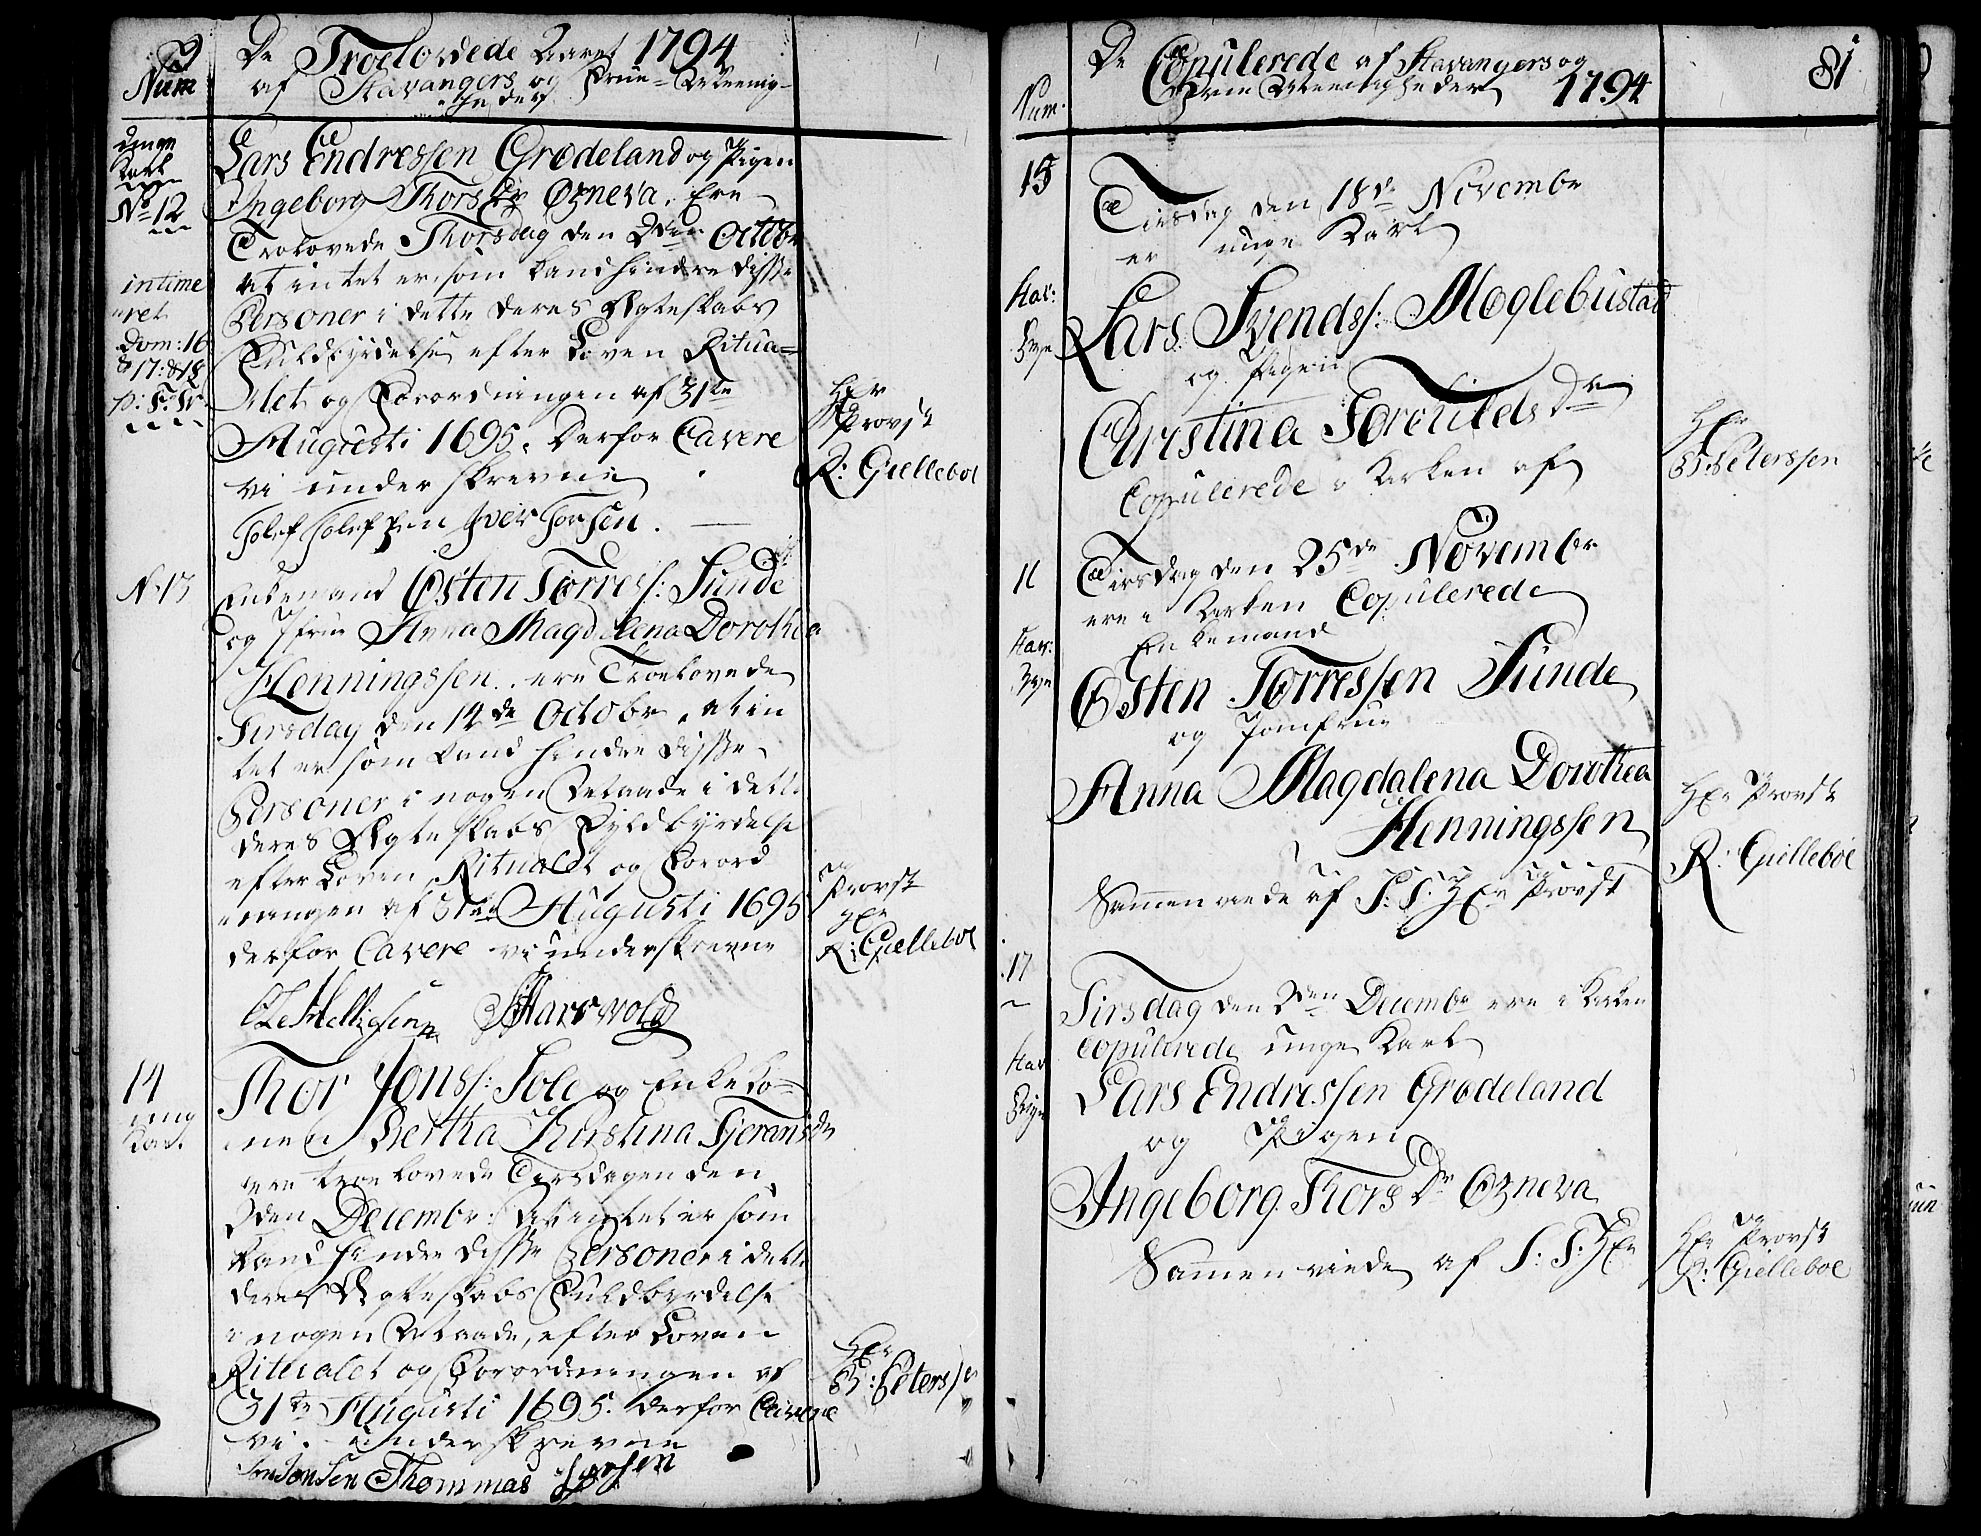 Num
De Troelovede Aaret 1794
af Stavangers og Frue-Meenig-
heder
unge
Karl
No 12
intime
ret
Dom: 16
& 17: & 18
p: F: Tr
Lars Endressen Grødeland og Pigen
Ingeborg Thors Dr Ozneva. Ere
Trolovede Thorsdag den 2den Octobr
at intet er som kand hindre disse
Personer i dette deres Ægteskabs
Fuldbyrdelse efter Loven Ritua-
let og Forordningen af 31te
Augusti 1695. Derfor Cavere
vi underskrevne
Hr
Provst
R: Gielleboe
N. 13
Enkemand Østen Torress: Sunde
og Jfrue Anna Magdalena Dorothea
Henningssen. ere Troelovede
Tirsdag den 14de Octobr. at in
tet er som kand hindre disse
Personer i nogen Maade i dette
deres Ægteskabs Fyldbyrdelse
efter Loven Ritualet og Forord
ningen af 31te Augusti 1695
derfor Cavere vi underskrevne
Provst
Hr
R: Gielleboe
14
ung
Karl
Thor Jonss: Sole og Enkeko-
nen Bertha Kirstina Tjerans Dr
ere troelovede Tirsdagen den
2den Decembr: At intet er som
kand hindre disse Personer i dette
deres Ægteskabs Fuldbyrdelse
i nogen Maade, efter Loven
Ritualet og Forordningen af
31te Augusti 1695. derfor Cavere
vi underskrevne
Jon Jonsen Thommas
Hr
B: Peterssen
Num.
De Copulerede af Stavangers og
Frue Meenigheder 1794
81
15
Tirsdag den 18de Novembr
er unge Karl
Lars Svendss: Møglebustad
og Pigen
Christina Torchilds Dr
Copulerede i Kirken af
Hr
B: Peterssen
Tirsdag den 25de Novembr
ere i Kirken Copulerede
Enkemand
Østen Torressen Sunde
og Jomfrue
Anna Magdalena Dorothea
Henningssen
Sammenviede af S: T: Hr Provst
Hr Provst
R: Gielleboe
17
Tirsdag den 2den Decembr ere i Kirken
copulerede unge Karl
Lars Endressen Grødeland
og Pigen
Ingeborg Thors Dr Ozneva
Sammenviede af S: T: Hr
Hr Provst
R: Gielleboe